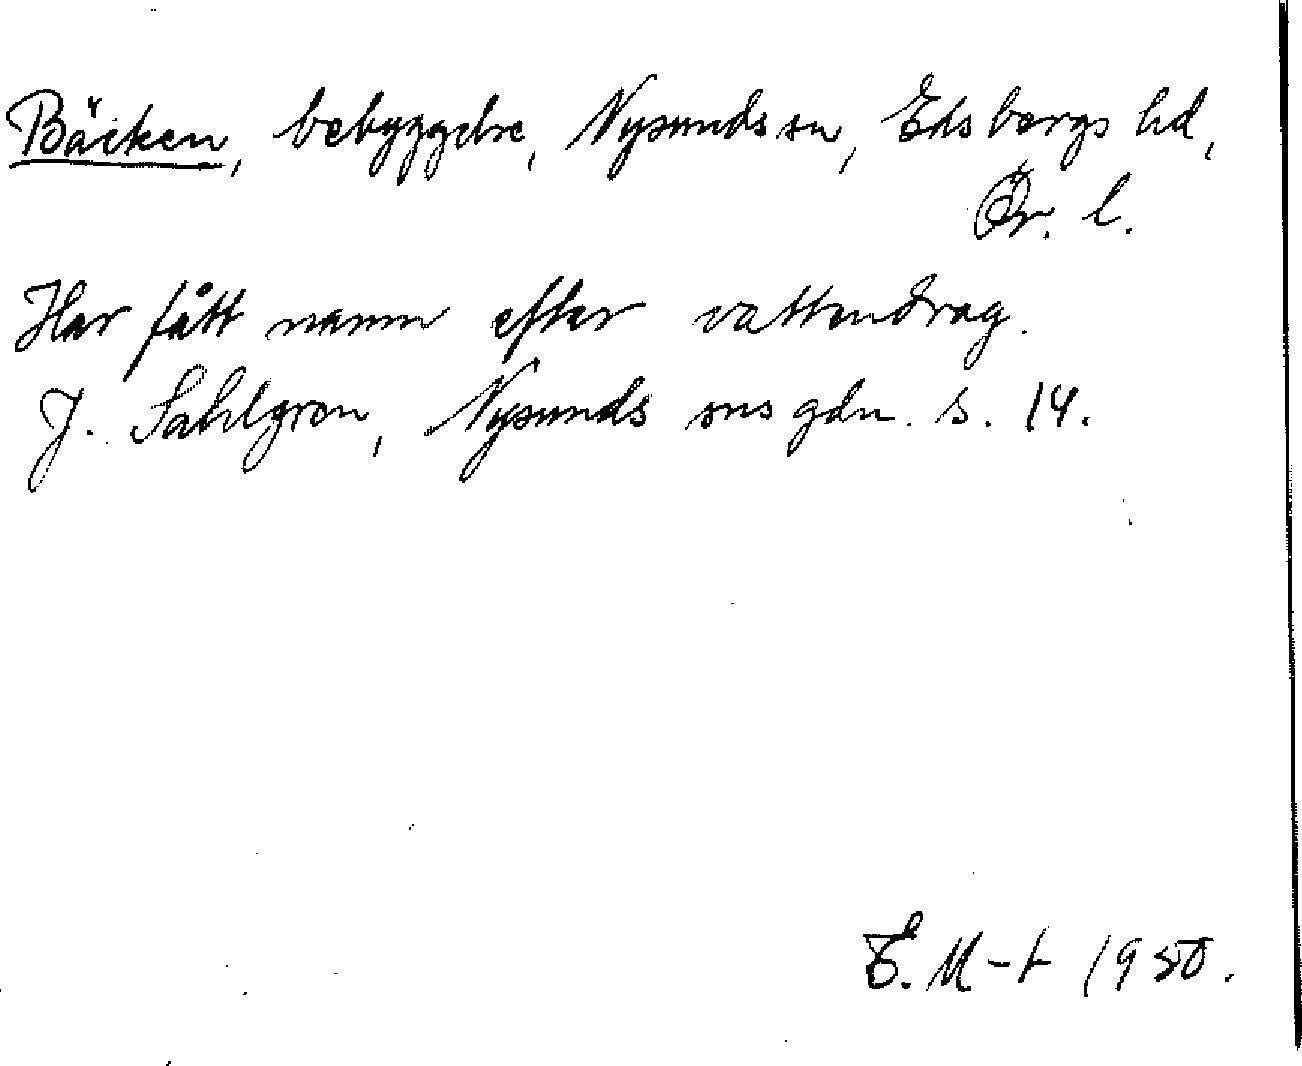 Bäcken, bebyggelse, Nysunds sn, Edsbergs hd,
Ör. l.
Har fått namn efter vattendrag.
J. Sahlgren, Nysunds sns gdn. s. 14.
E. M-t 1950.